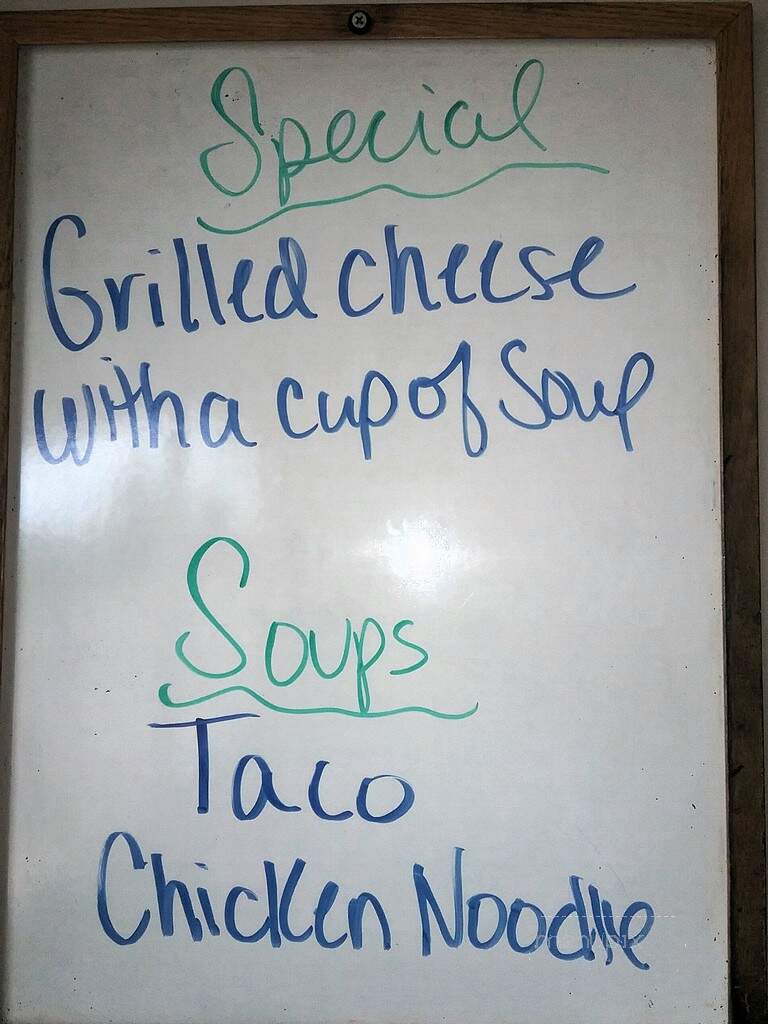 Special
Grilled cheese
with a cup of Soup
Soups
Taco
Chicken Noodle